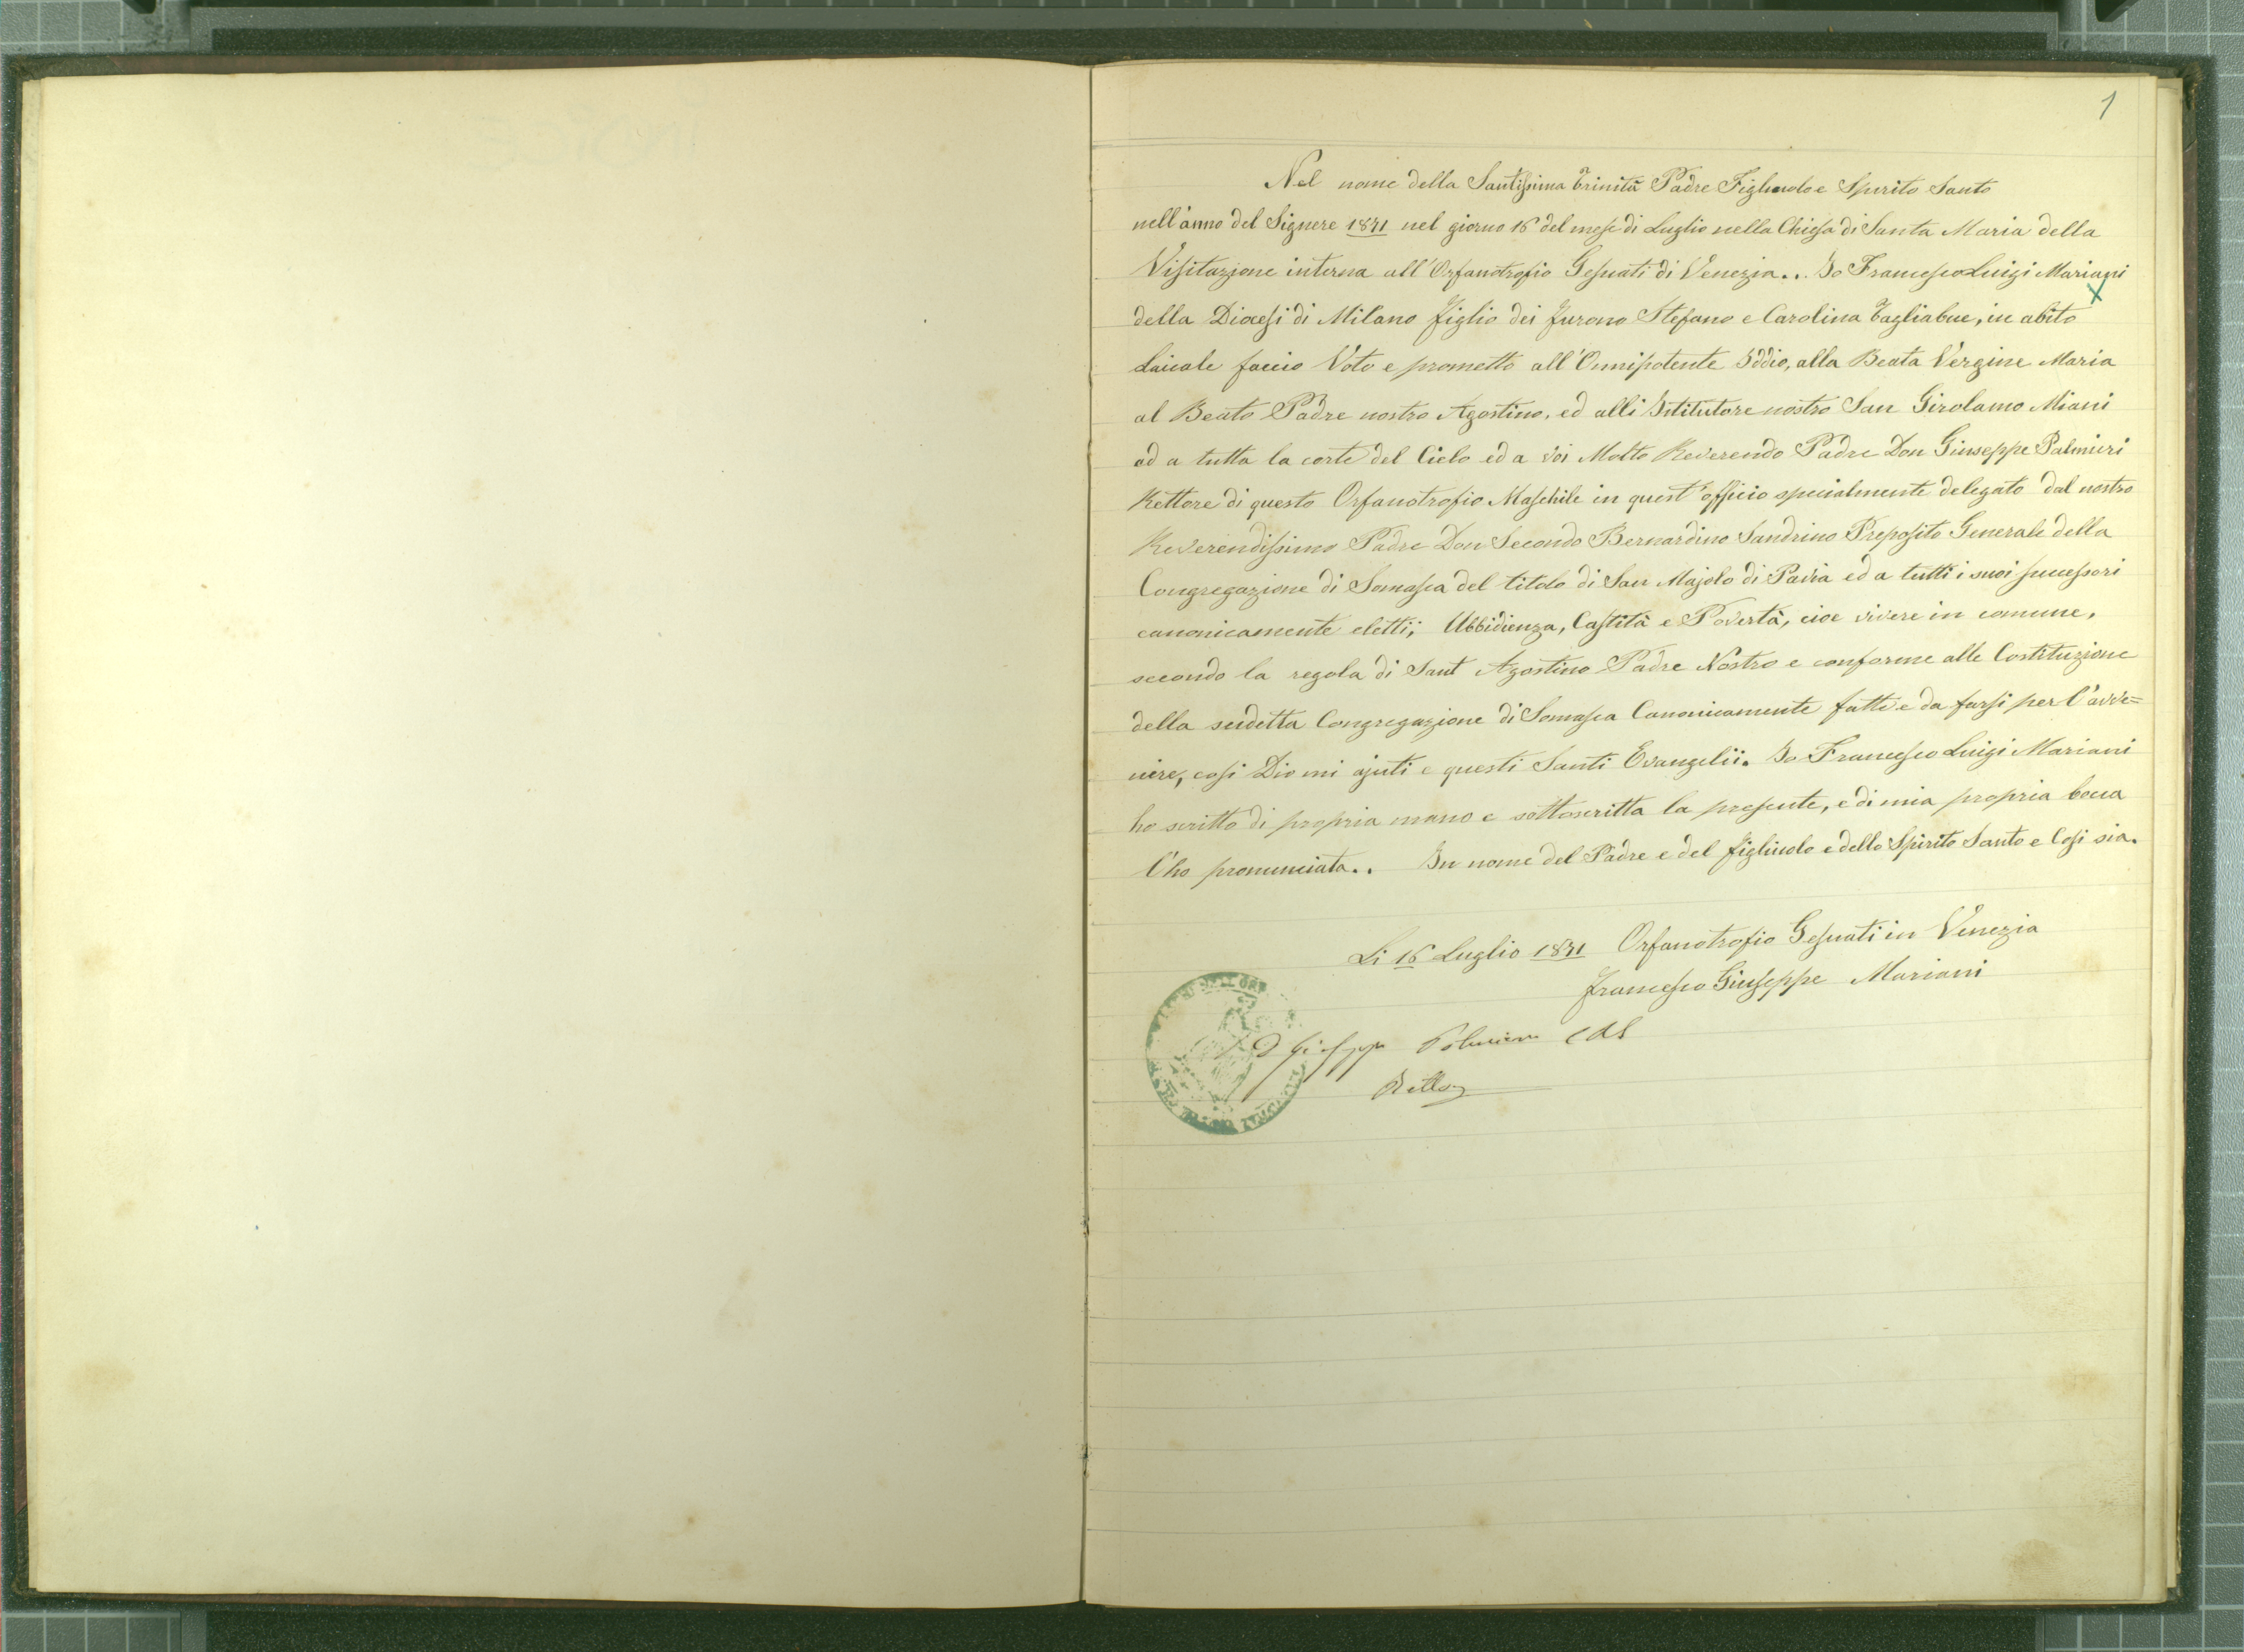 1
Nel nome della Santissima Trinità Padre Figliuolo e Spirito Santo
nell'anno del Signere 1871 nel giorno 16 del mese di Luglio nella Chiesa di Santa Maria della
Visitazione interna all'Orfanotrofio Gesuati di Venezia.. Io Francesco Luigi Mariani
della Diocesi di Milano figlio dei furono Stefano e Carolina Tagliabue, in abito
Laicale faccio Voto e prometto all'Onnipotente Iddio, alla Beata Vergine Maria
al Beato Padre nostro Agostino, ed alli Istitutore nostro San Girolamo Miani
ed a tutta la corte del Cielo ed a voi Molto Reverendo Padre Don Giuseppe Palmieri
Rettore di questo Orfanotrofio Maschile in quest'officio specialmente delegato dal nostro
Reverendissimo Padre Don Secondo Bernardino Sandrino Preposito Generale della
Congregazione di Somasca del titolo di San Majolo di Pavia ed a tutti i suoi successori
canonicamente eletti; Ubbidienza, Castità e Povertà, cioe vivere in comune,
secondo la regola di Sant Agostino Padre Nostro e conforme alle Costituzione
della sudetta Congregazione di Somasca Canonicamente fatte e da farsi per l'avve=
nire, cosi Dio mi ajuti e questi Santi Evangelii. Io Francesco Luigi Mariani
ho scritto di propria mano e sottoscritta la presente, e di mia propria bocca
l'ho pronunciata.. In nome del Padre e del figliuolo e dello Spirito Santo e Cosi sia.
Li 16 Luglio 1871 Orfanotrofio Gesuati in Venezia
Francesco Giuseppe Mariani
D Giuseppe Palmieri CRS
Rettore